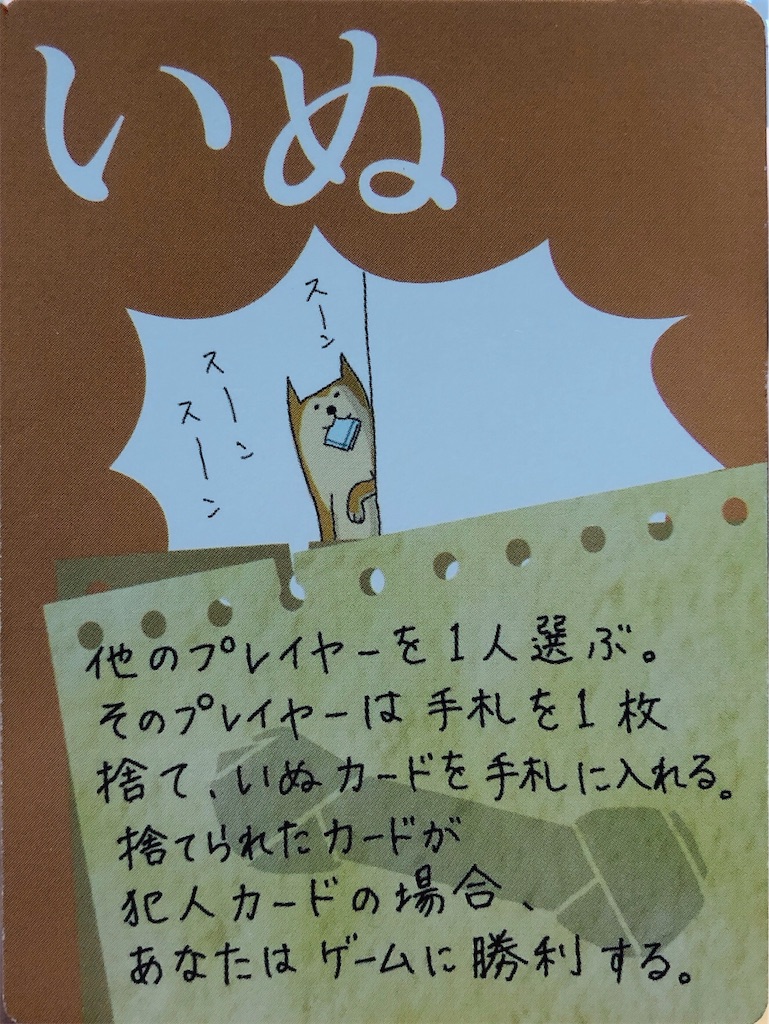 いぬ
スーン
スーン
スーン
他のプレイヤーを1人選ぶ。
そのプレイヤーは手札を1枚
捨て、いぬカードを手札に入れる。
捨てられたカードが
犯人カードの場合、
あなたはゲームに勝利する。